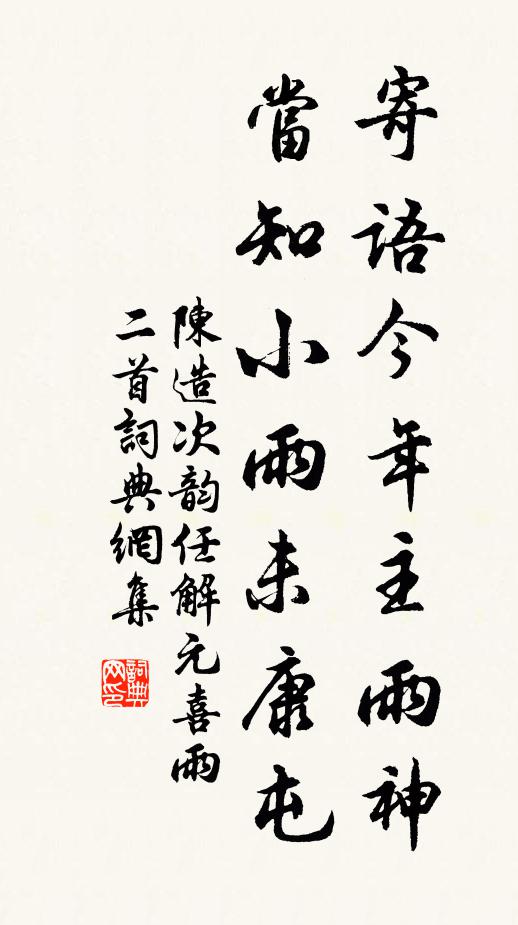 寄語今年主雨神
當知小雨未康屯
陳造次韵任解元喜雨
二首詞典網集
詞典网印